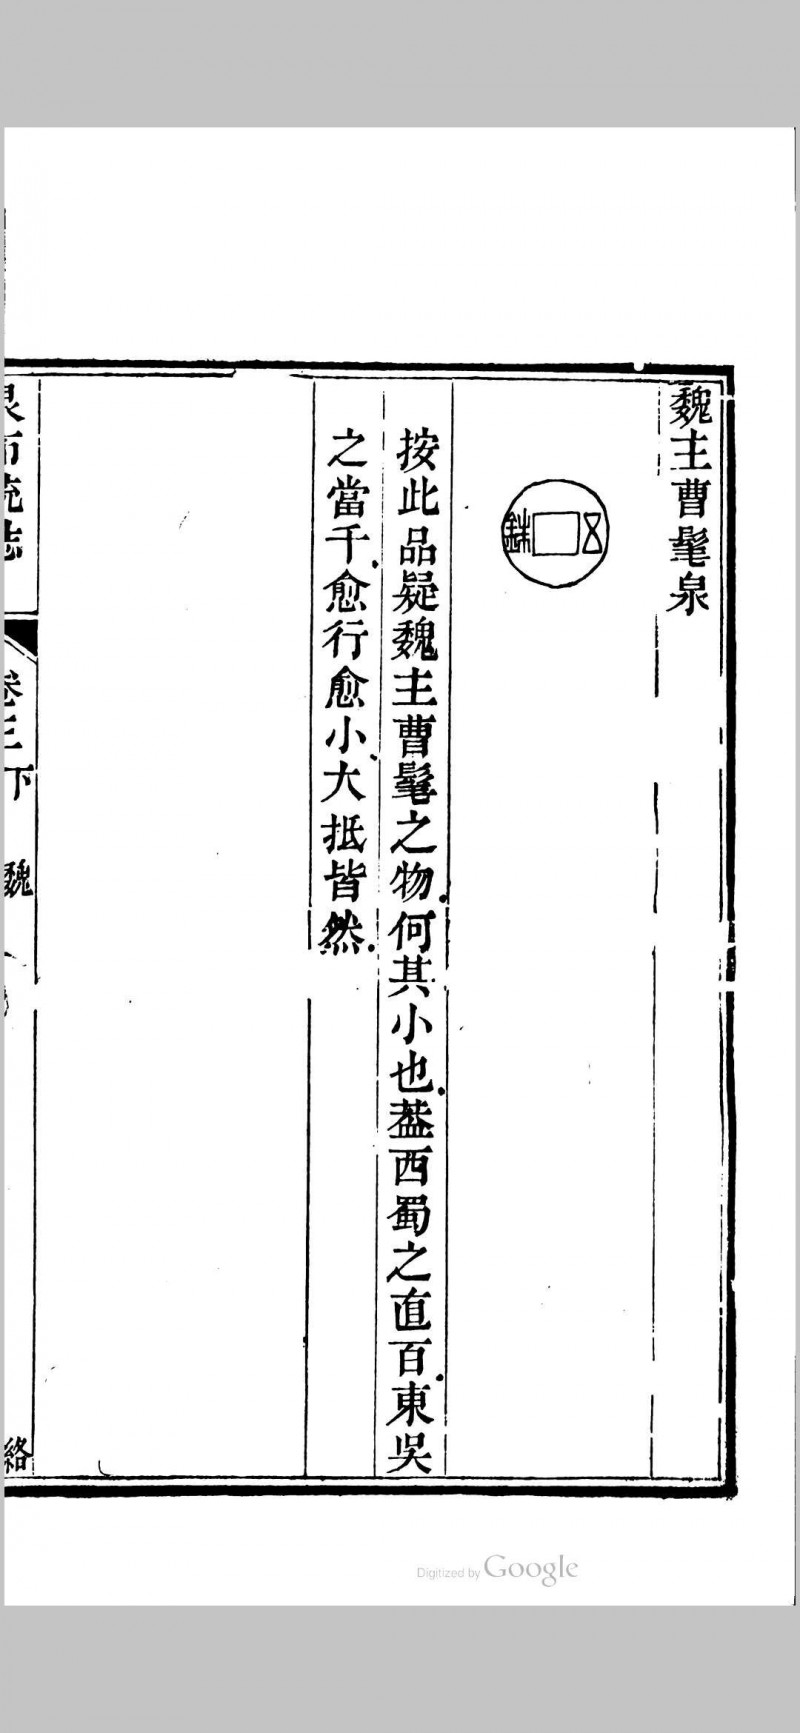 魏主曹髦泉
五銖
按此品疑魏主曹髦之物何其小也葢西蜀之直百東吳
之當千愈行愈小大抵皆然
泉布統誌
卷三下 魏
絡
Digitized by Google